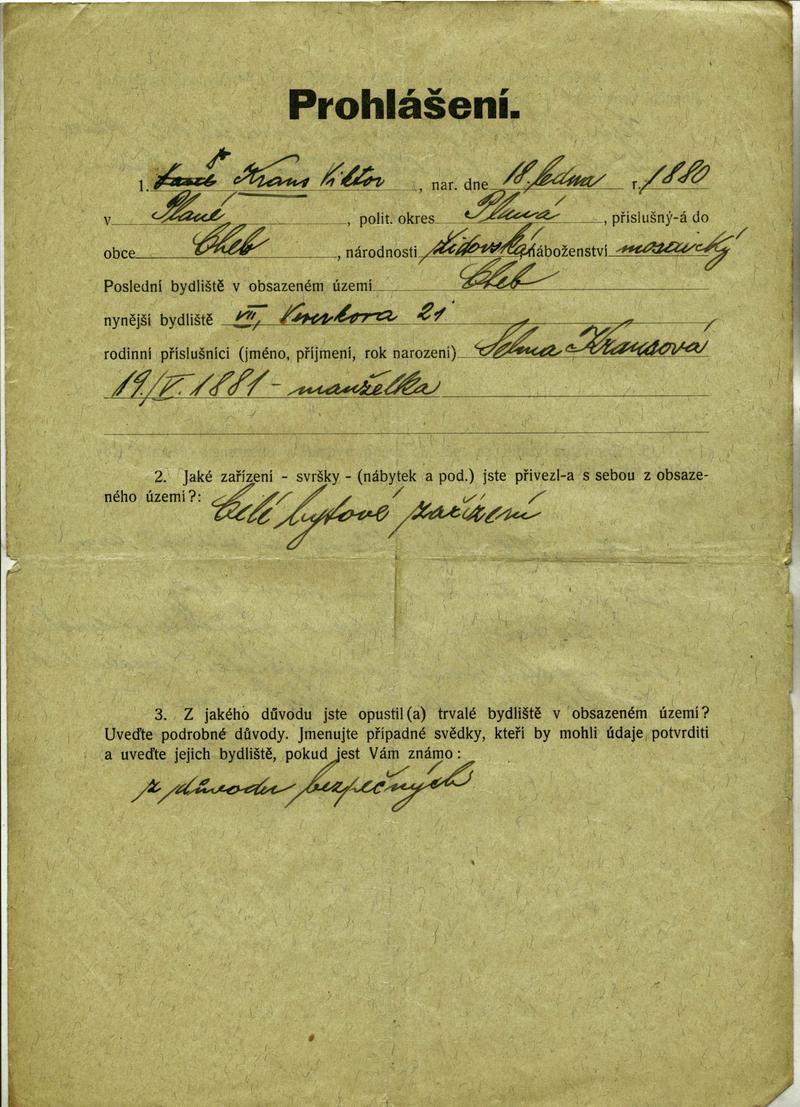 Prohlášení.
1. Kraus Viktor, nar. dne 18. ledna r. 1880
v Plané, polit. okres Planá, příslušný-á do
obce Cheb, národnosti židovská, náboženství mosaický
Poslední bydliště v obsazeném území Cheb
nynější bydliště VII, Veverkova 21
rodinní příslušníci (jméno, příjmení, rok narození) Selma Krausová
19./V. 1881 - manželka
2. Jaké zařízení - svršky - (nábytek a pod.) jste přivezl-a s sebou z obsaze-
ného území?: Celé bytové zařízení
3. Z jakého důvodu jste opustil(a) trvalé bydliště v obsazeném území?
Uveďte podrobné důvody. Jmenujte případné svědky, kteří by mohli údaje potvrditi
a uveďte jejich bydliště, pokud jest Vám známo:
z důvodu bezpečných